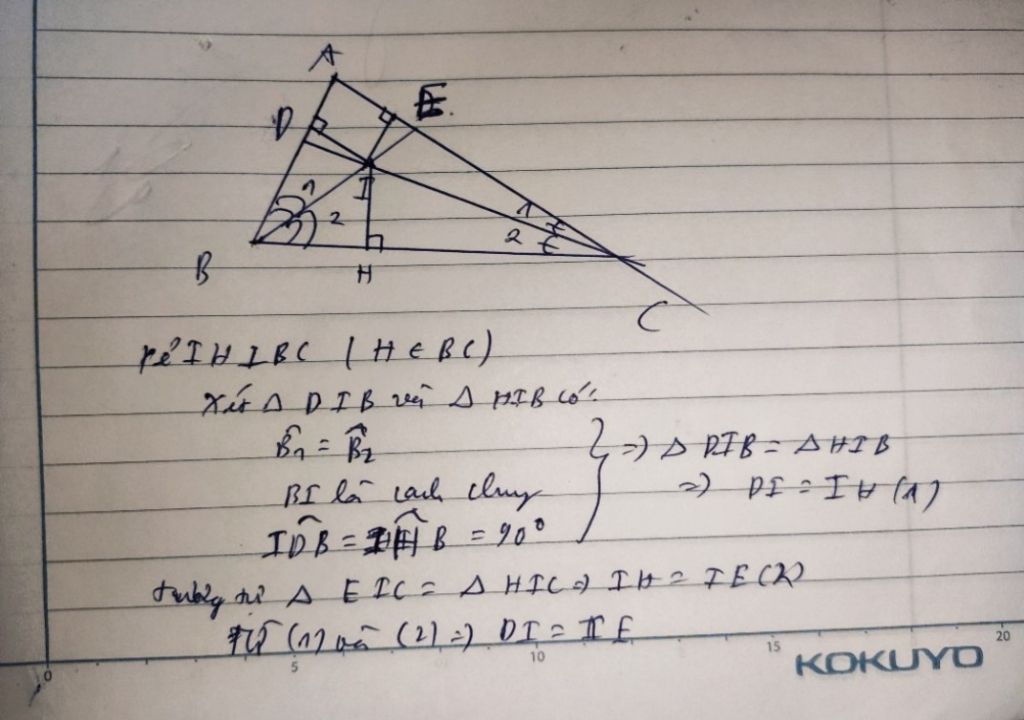 A
D
E
1
I
2
1
2
B
H
C
Kẻ IH ⊥ BC (H ∈ BC)
Xét Δ DIB và Δ HIB có:
B̂1 = B̂2
BI là cạnh chung
ID̂B = IĤB = 90°
} => Δ DIB = Δ HIB
=> DI = IH (1)
tương tự Δ EIC = Δ HIC => IH = IE (2)
Từ (1) và (2) => DI = IE
0 5 10 15 20
KOKUYO